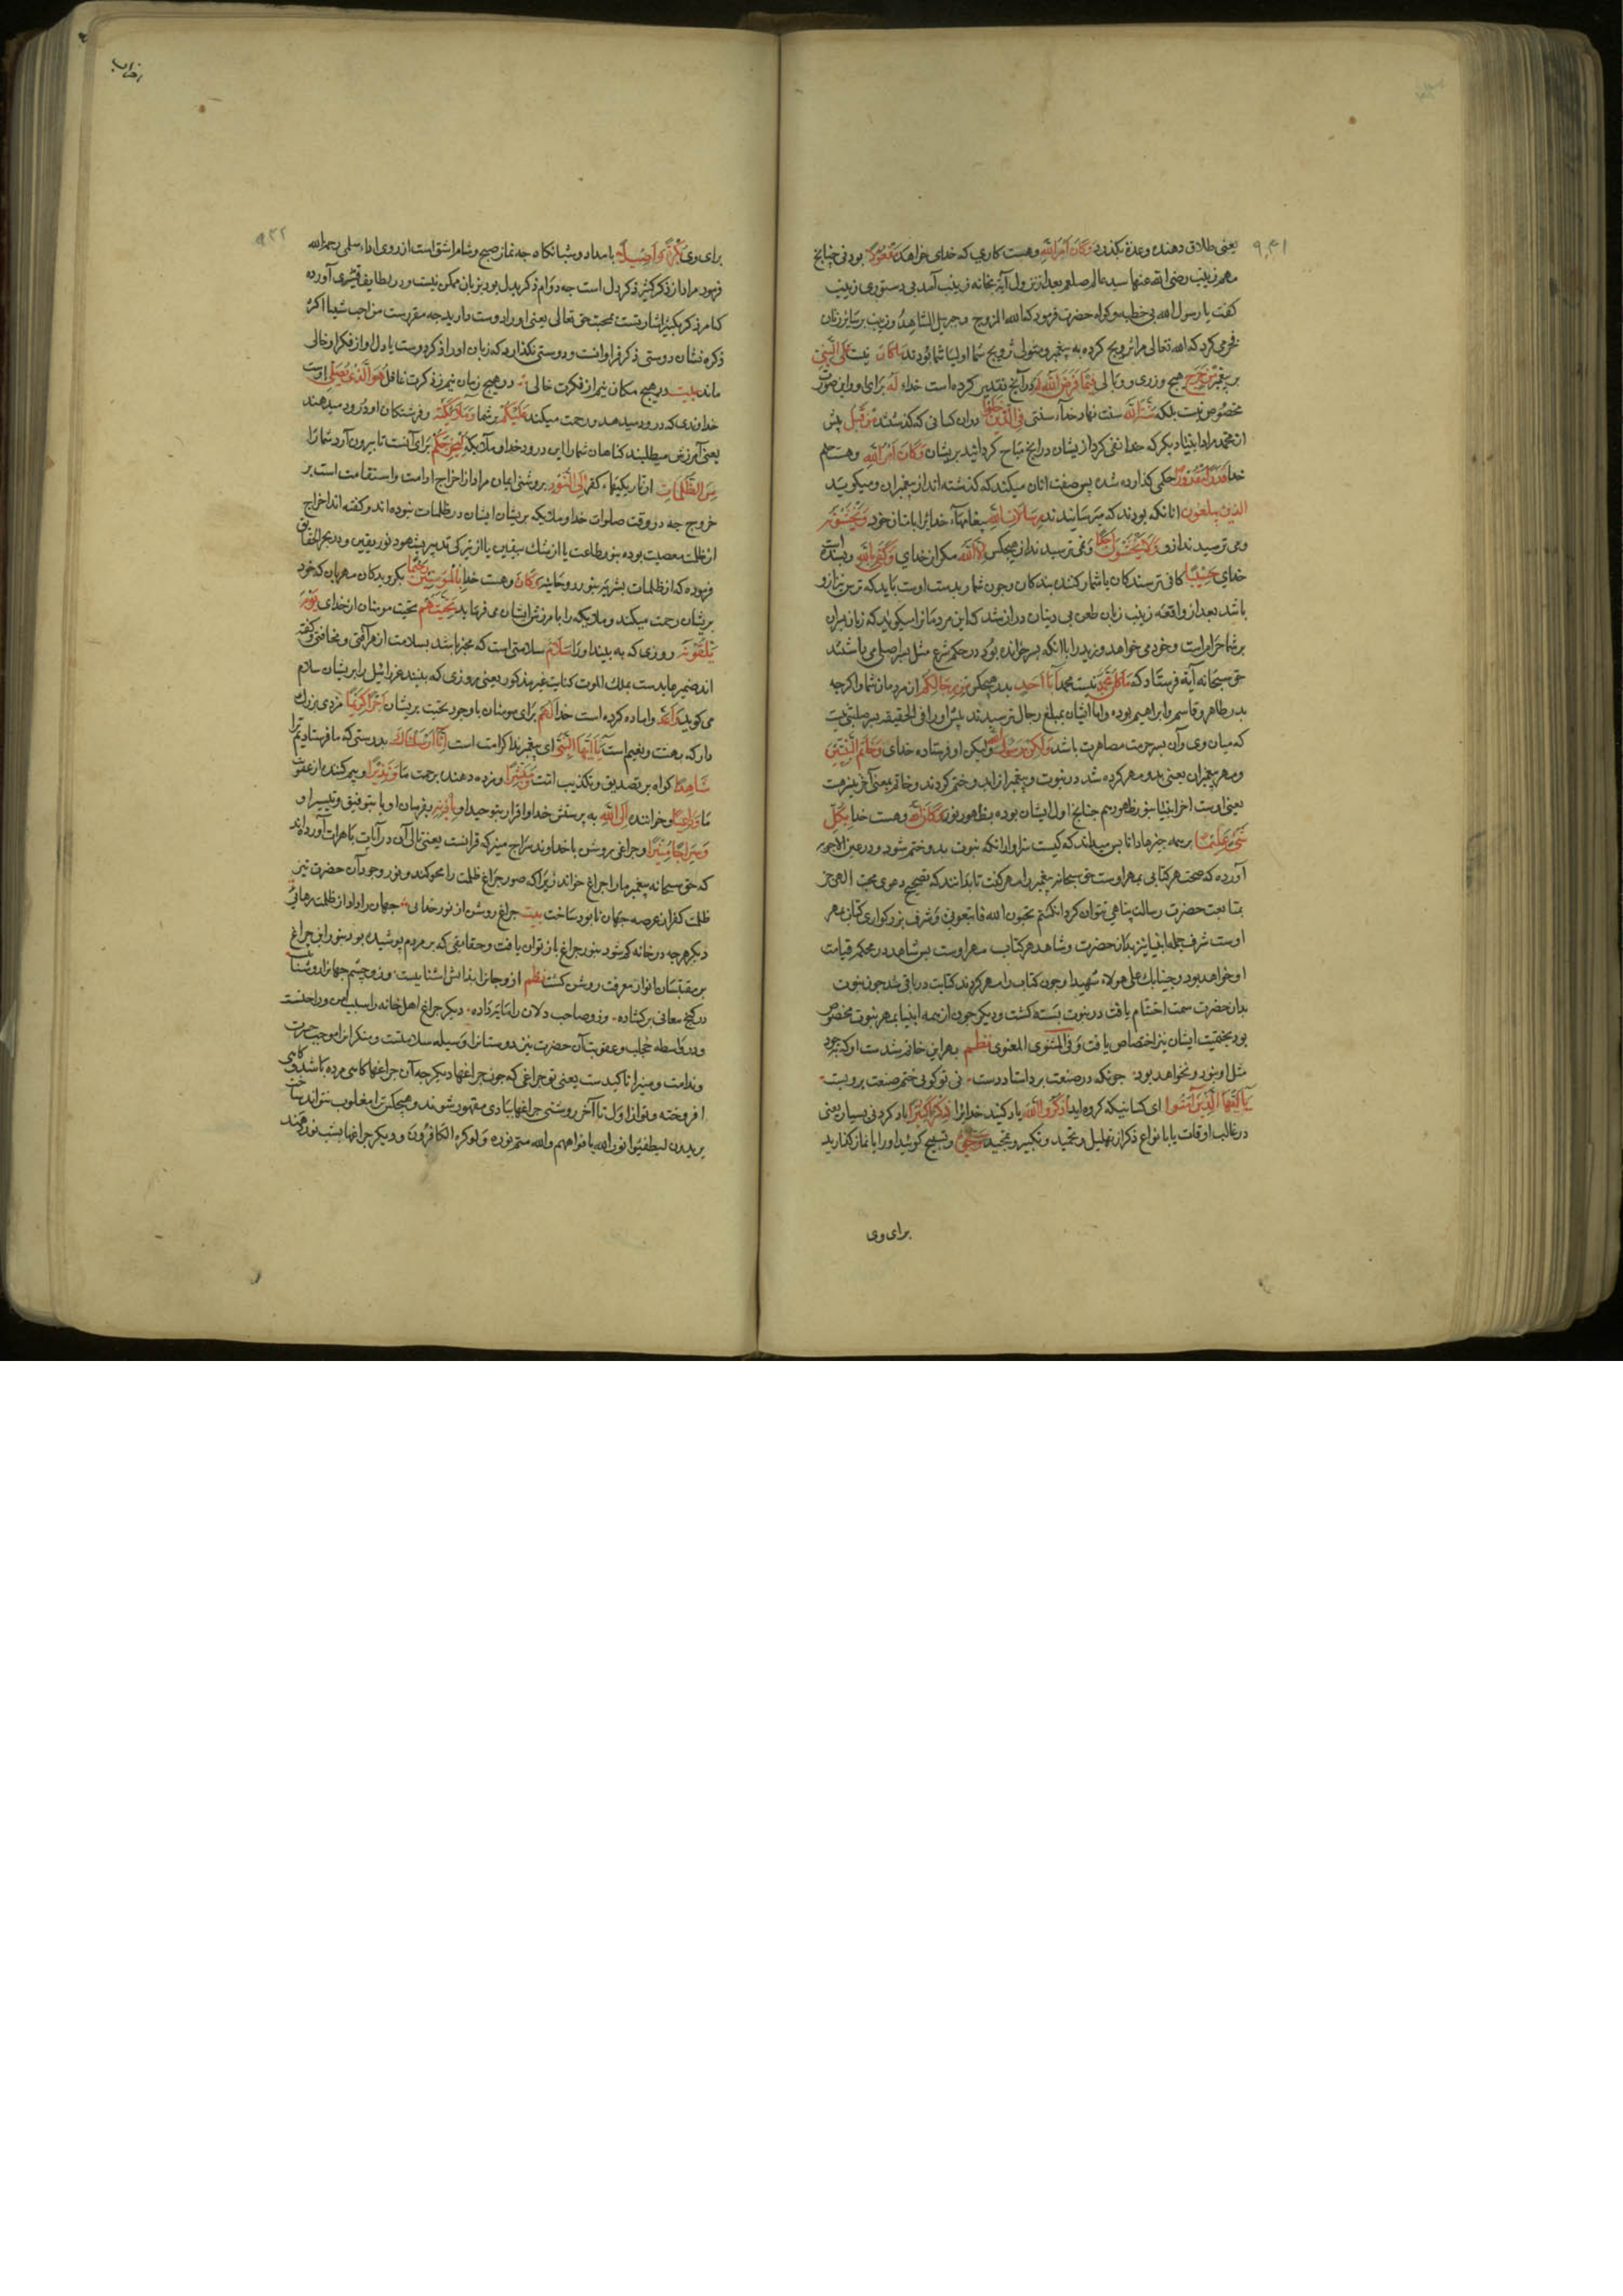 یعنی طلاق دهنده وعدة بگذرد وَكَانَ اَمْرُ اللّٰهِ وهست کاری که خدای خواهد مَفْعُولًا بودنی چنانچ
مهم زینب رضی الله عنها سید عالم صلعم بعد از نزول آیة بخانه زینب آمد بی دستوری زینب
کفت یا رسول الله بی خطبه وکواه حضرت فرمود که الله المزوج وجبریل الشاهد وزینب بر سایر زنان
فخر می کرد که الله تعالی مرا تزویج کرده به پیغمبر ومتولی تزویج شما اولیا شما بودند مَا كَانَ نیست عَلَى النَّبِيِّ
بر پیغمبر مِنْ حَرَجٍ هیچ وزری ووبالی فِيمَا فَرَضَ اللّٰهُ لَهُ در آنچ تقدیر کرده است خداء لَهُ برای او واین صورت
مخصوص نیست بلکه سُنَّةَ اللّٰهِ سنت نهاد خدا سنتی فِي الَّذِينَ خَلَوْا دران کسانی که گذشتند مِنْ قَبْلُ پیش
از محمد مراد انبیاء دیکرکه خدا نفی کرد از یشان درانچ مباح کردانید بریشان وَكَانَ اَمْرُ اللّٰهِ وهست حکم
خدا قَدَرًا مَقْدُورًا حکمی کذارده شده پس صفت انان میکند که کذشته اند از پیغمبران ومیکوید
الذین يبلغون انانکه بودند که میرسانیدند رِسَالَاتِ اللّٰهِ پیغامهاء خدایرا بامتان خود وَيَخْشَوْنَهُ
ومی ترسیدند ازو وَلَا يَخْشَوْنَ اَحَدًا ونمی ترسیدند از هیچکس اِلَّا اللّٰهَ مکر از خدای وَكَفَى بِاللّٰهِ وبسنده است
خدای حَسِيبًا کافی ترسندکان یا شمار کننده بندکان وچون شمار بدست اوست باید که ترس نیز ازو
باشد بعد از واقعه زینب زبان طعن بی دینان دراز شد که این مرد مارا میکوید که زنان پسران
بر شما حرام است وخود می خواهد وزید را با آنکه پسر خوانده بود در حکم شرع مثل پسر اصلی می باشند
حق سبحانه آیة فرستاد که مَا كَانَ مُحَمَّدٌ نیست محمد اَبَا اَحَدٍ پدر هیچکس مِنْ رِجَالِكُمْ از مردمان شما واکرچه
پدر طاهر وقاسم وابراهیم بوده واما ایشان بمبلغ رجال نرسیدند پس اورا فی الحقیقه پسر صلبی نیست
که میان وی وآن پسر حرمت مصاهرت باشد وَلَكِنْ رَسُولَ اللّٰهِ ولیکن او فرستاده خدای وَخَاتَمَ النَّبِيِّينَ
ومهر پیغمبران یعنی بدو مهر کرده شد در نبوت وپیغمبرانرا بدو ختم کردند وخاتم بمعنی آخر نیز هست
یعنی اوست اخر انبیا بنور ظاهور هم چنانچ اول ایشان بوده بظهور نور وَكَانَ اللّٰهُ وهست خدا بِكُلِّ
شَيْءٍ عَلِيمًا بر همه چیزها دانا پس میداند که کیست سزاوار انکه نبوت بدو ختم شود ودر عین الاجوبه
آورده که صحت هر کتابی بمهر اوست حق سبحانه پیغمبر را مهر کفت تا بدانند که تصحیح دعوی محبت الهی جز
بمتابعت حضرت رسالت پناهی نتوان کرد ان کنتم تحبون الله فاتبعونی وشرف بزرکواری کتاب بمهر
اوست شرف جمله انبیا نیز بدان حضرت وشاهد هر کتاب مهر اوست پس شاهد در محکمه قیامت
او خواهد بود وجئنا بك على هؤلاء شهیدا وچون کتاب را مهر کردند کتابت در باقی شد چون نبوت
بدان حضرت سمت اختتام یافت در نبوت بسته کشت ودیکر چون از همه انبیا بمهر نبوت مخصوص
بود بختمیت ایشان نیز اختصاص یافت وفی المثنوی المعنوی نظم بهر این خاتم شدست او که بجود
مثل او نبود ونخواهد بود چونکه در صنعت برد استاد دست نی تو کویی ختم صنعت بر ویست
يَا اَيُّهَا الَّذِينَ آمَنُوا ای کسانیکه کرویده اید اُذْكُرُوا اللّٰهَ یاد کنید خدایرا ذِكْرًا كَثِيرًا یاد کردنی بسیار یعنی
در غالب اوقات یا بانواع ذکر از تهلیل وتحمید وتکبیر وتمجید وَسَبِّحُوهُ وتسبیح کوئید اورا یا نماز کذارید
برای وی
برای وی بُكْرَةً وَاَصِيلًا بامداد وشبانکاه چه نماز صبح وشام اشق است از روی اداء سلمی رحمه الله
فرمود مراد از ذکر کثیر ذکر دل است چه دوام ذکر بدل بود بزبان ممکن نیست ودر لطایف قشیری آورده
که امر ذکر بکثیر اشارتست بمحبت حق تعالی یعنی اورا دوست دارید چه مقررست من احب شیئا اکثر
ذکره نشان دوستی ذکر فراوانست ودوستی نکذارد که زبان او از ذکر دوست یا دل او از فکر او خالی
ماند بیت در هیچ مکان نیم از فکرت خالی در هیچ زمان نیم ز ذکرت غافل هُوَ الَّذِي يُصَلِّي اوست
خداوندی که درود میدهد ورحمت میکند عَلَيْكُمْ بر شما وَمَلَائِكَتُهُ وفرشتکان او درود میدهند
یعنی آمرزش میطلبند کناهان شمارا این درود خدا وملائکه لِيُخْرِجَكُمْ برای آنست تا بیرون آرد شمارا
مِنَ الظُّلُمَاتِ از تاریکیهاء کفر اِلَى النُّورِ بروشنی ایمان مراد از اخراج ادامت واستقامت است بر
خروج چه در وقت صلوات خدا وملائکه بریشان ایشان در ظلمات نبوده اند وکفته اند اخراج
از ظلمت معصیت بوده بنور طاعت یا از شك بیقین یا از تیرکی تدبیر بشهود نور یقین ودر بحر الحقایق
فرموده که از ظلمات بشریه بنور روحانیه وَكَانَ وهست خدا بِالْمُؤْمِنِينَ رَحِيمًا بکرویدکان مهربان که خود
بریشان رحمت میکند وملائکه را بآمرزش ایشان می فرماید تَحِيَّتُهُمْ تحیت مومنان از خدای يَوْمَ
يَلْقَوْنَهُ روزی که به بینند اورا سَلَامٌ سلامتی است که مخبر باشد بسلامت از هر آفتی ومخافتی وکفته
اند ضمیر عایدست بملك الموت کنایت غیر مذکور یعنی روزی که ببینند عزرائیل را بریشان سلام
می کوید وَاَعَدَّ واماده کرده است خدا لَهُمْ برای مومنان باوجود تحیت بریشان اَجْرًا كَرِيمًا مزدی بزرك
دارکه بهشت ونعیم است يَا اَيُّهَا النَّبِيُّ ای پیغمبر ندا کرامت است اِنَّا اَرْسَلْنَاكَ بدرستی که ما فرستادیم ترا
شَاهِدًا کواه بر تصدیق وتکذیب امت وَمُبَشِّرًا ومژده دهنده برحمت ما وَنَذِيرًا وبیم کننده از عقوبت
ما وَدَاعِيًا وخواننده اِلَى اللّٰهِ به پرستش خدا واقرار بتوحید او بِاِذْنِهِ بفرمان او یا بتوفیق وتیسیر او
وَسِرَاجًا مُنِيرًا وچراغی روشن یا خداوند سراج منیر که قرآنست یعنی تالی آن در آیات باهرات آورده اند
که حق سبحانه پیغمبر مارا چراغ خواند زیرا که صور چراغ ظلمت را محو کند ونور وجود آن حضرت نیز
ظلمت کفر از عرصه جهان نابود ساخت بیت چراغ روشن از نور خدایی جهان را داد از ظلمت رهائی
دیکر هرچه در خانه کم شود بنور چراغ باز توان یافت وحقایقی که بر مردم پوشیده بود بنور این چراغ
بر مقتبسان انوار معرفت روشن کشت نظم ازو جانرا بدانش اشناییست وزو چشم جهانرا روشناییست
در کنج معانی برکشاده وزو صاحب دلان را مایه داده دیکر چراغ اهل خانه را سبب امن وراحتست
ودزد را واسطه خجلت وعقوبت آن حضرت نیز دوستانرا وسیله سلامتست ومنکرانرا موجب حسرت
وندامت ومنیرا تاکیدست یعنی تو چراغی که چون چراغها دیکر چه آن چراغها کاهی مرده باشد وکاهی
افروخته وتو از اول تا آخر روشنی چراغها ببادی مقهور شوند وهیچکس ترا مغلوب نتواند ساخت
یریدون لیطفئوا نور الله بافواههم والله متم نوره ولو کره الکافرون ودیکر چراغها بشب نور دهند